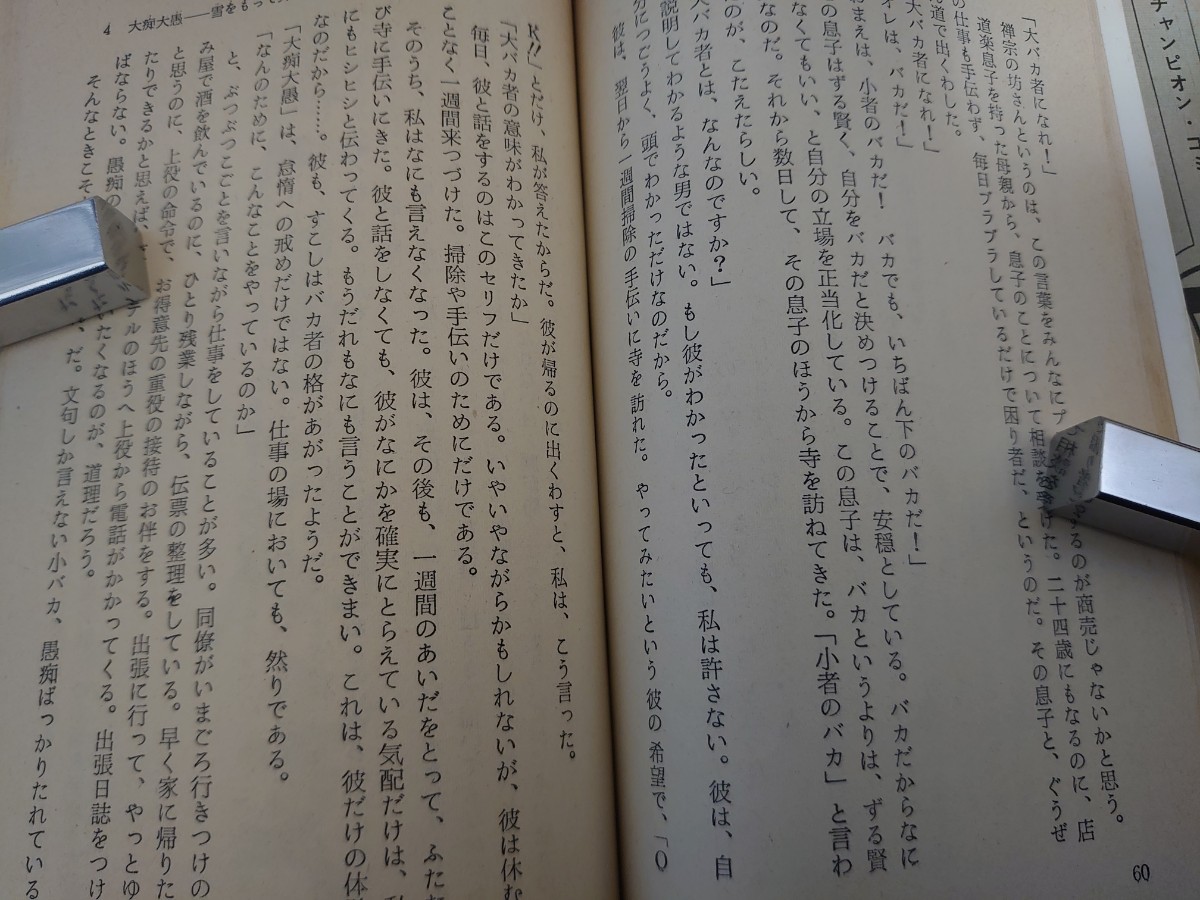 チャンピオン・コミ
「大バカ者になれ！」
禅宗の坊さんというのは、この言葉をみんなにプ るのが商売じゃないかと思う。
道楽息子を持った母親から、息子のことについて相談を けた。二十四歳にもなるのに、店
の仕事も手伝わず、毎日ブラブラしているだけで困り者だ、というのだ。その息子と、ぐうぜ
ん道で出くわした。
「大バカ者になれ！」
オレは、バカだ！」
おまえは、小者のバカだ！ バカでも、いちばん下のバカだ！」
の息子はずる賢く、自分をバカだと決めつけることで、安穏としている。バカだからなに
なくてもいい、と自分の立場を正当化している。この息子は、バカというよりは、ずる賢
なのだ。それから数日して、その息子のほうから寺を訪ねてきた。「小者のバカ」と言わ
のが、こたえたらしい。
大バカ者とは、なんなのですか？」
説明してわかるような男ではない。もし彼がわかったといっても、私は許さない。彼は、自
分につごうよく、頭でわかっただけなのだから。
彼は、翌日から一週間掃除の手伝いに寺を訪れた。やってみたいという彼の希望で、「O
60
4 大痴大愚——雪をもって
K!!」とだけ、私が答えたからだ。彼が帰るのに出くわすと、私は、こう言った。
「大バカ者の意味がわかってきたか」
毎日、彼と話をするのはこのセリフだけである。いやいやながらかもしれないが、彼は休む
ことなく一週間来つづけた。掃除や手伝いのためにだけである。
そのうち、私はなにも言えなくなった。彼は、その後も、一週間のあいだをとって、ふた
び寺に手伝いにきた。彼と話をしなくても、彼がなにかを確実にとらえている気配だけは、
にもヒシヒシと伝わってくる。もうだれもなにも言うことができまい。これは、彼だけの体
なのだから……。彼も、すこしはバカ者の格があがったようだ。
「大痴大愚」は、怠惰への戒めだけではない。仕事の場においても、然りである。
「なんのために、こんなことをやっているのか」
と、ぶつぶつこごとを言いながら仕事をしていることが多い。同僚がいまごろ行きつけの
み屋で酒を飲んでいるのに、ひとり残業しながら、伝票の整理をしている。早く家に帰りた
と思うのに、上役の命令で、お得意先の重役の接待のお伴をする。出張に行って、やっとゆ
たりできるかと思えば、 テルのほうへ上役から電話がかかってくる。出張日誌をつけ
ばならない。愚痴の いたくなるのが、道理だろう。
そんなときこそ だ。文句しか言えない小バカ、愚痴ばっかりたれている